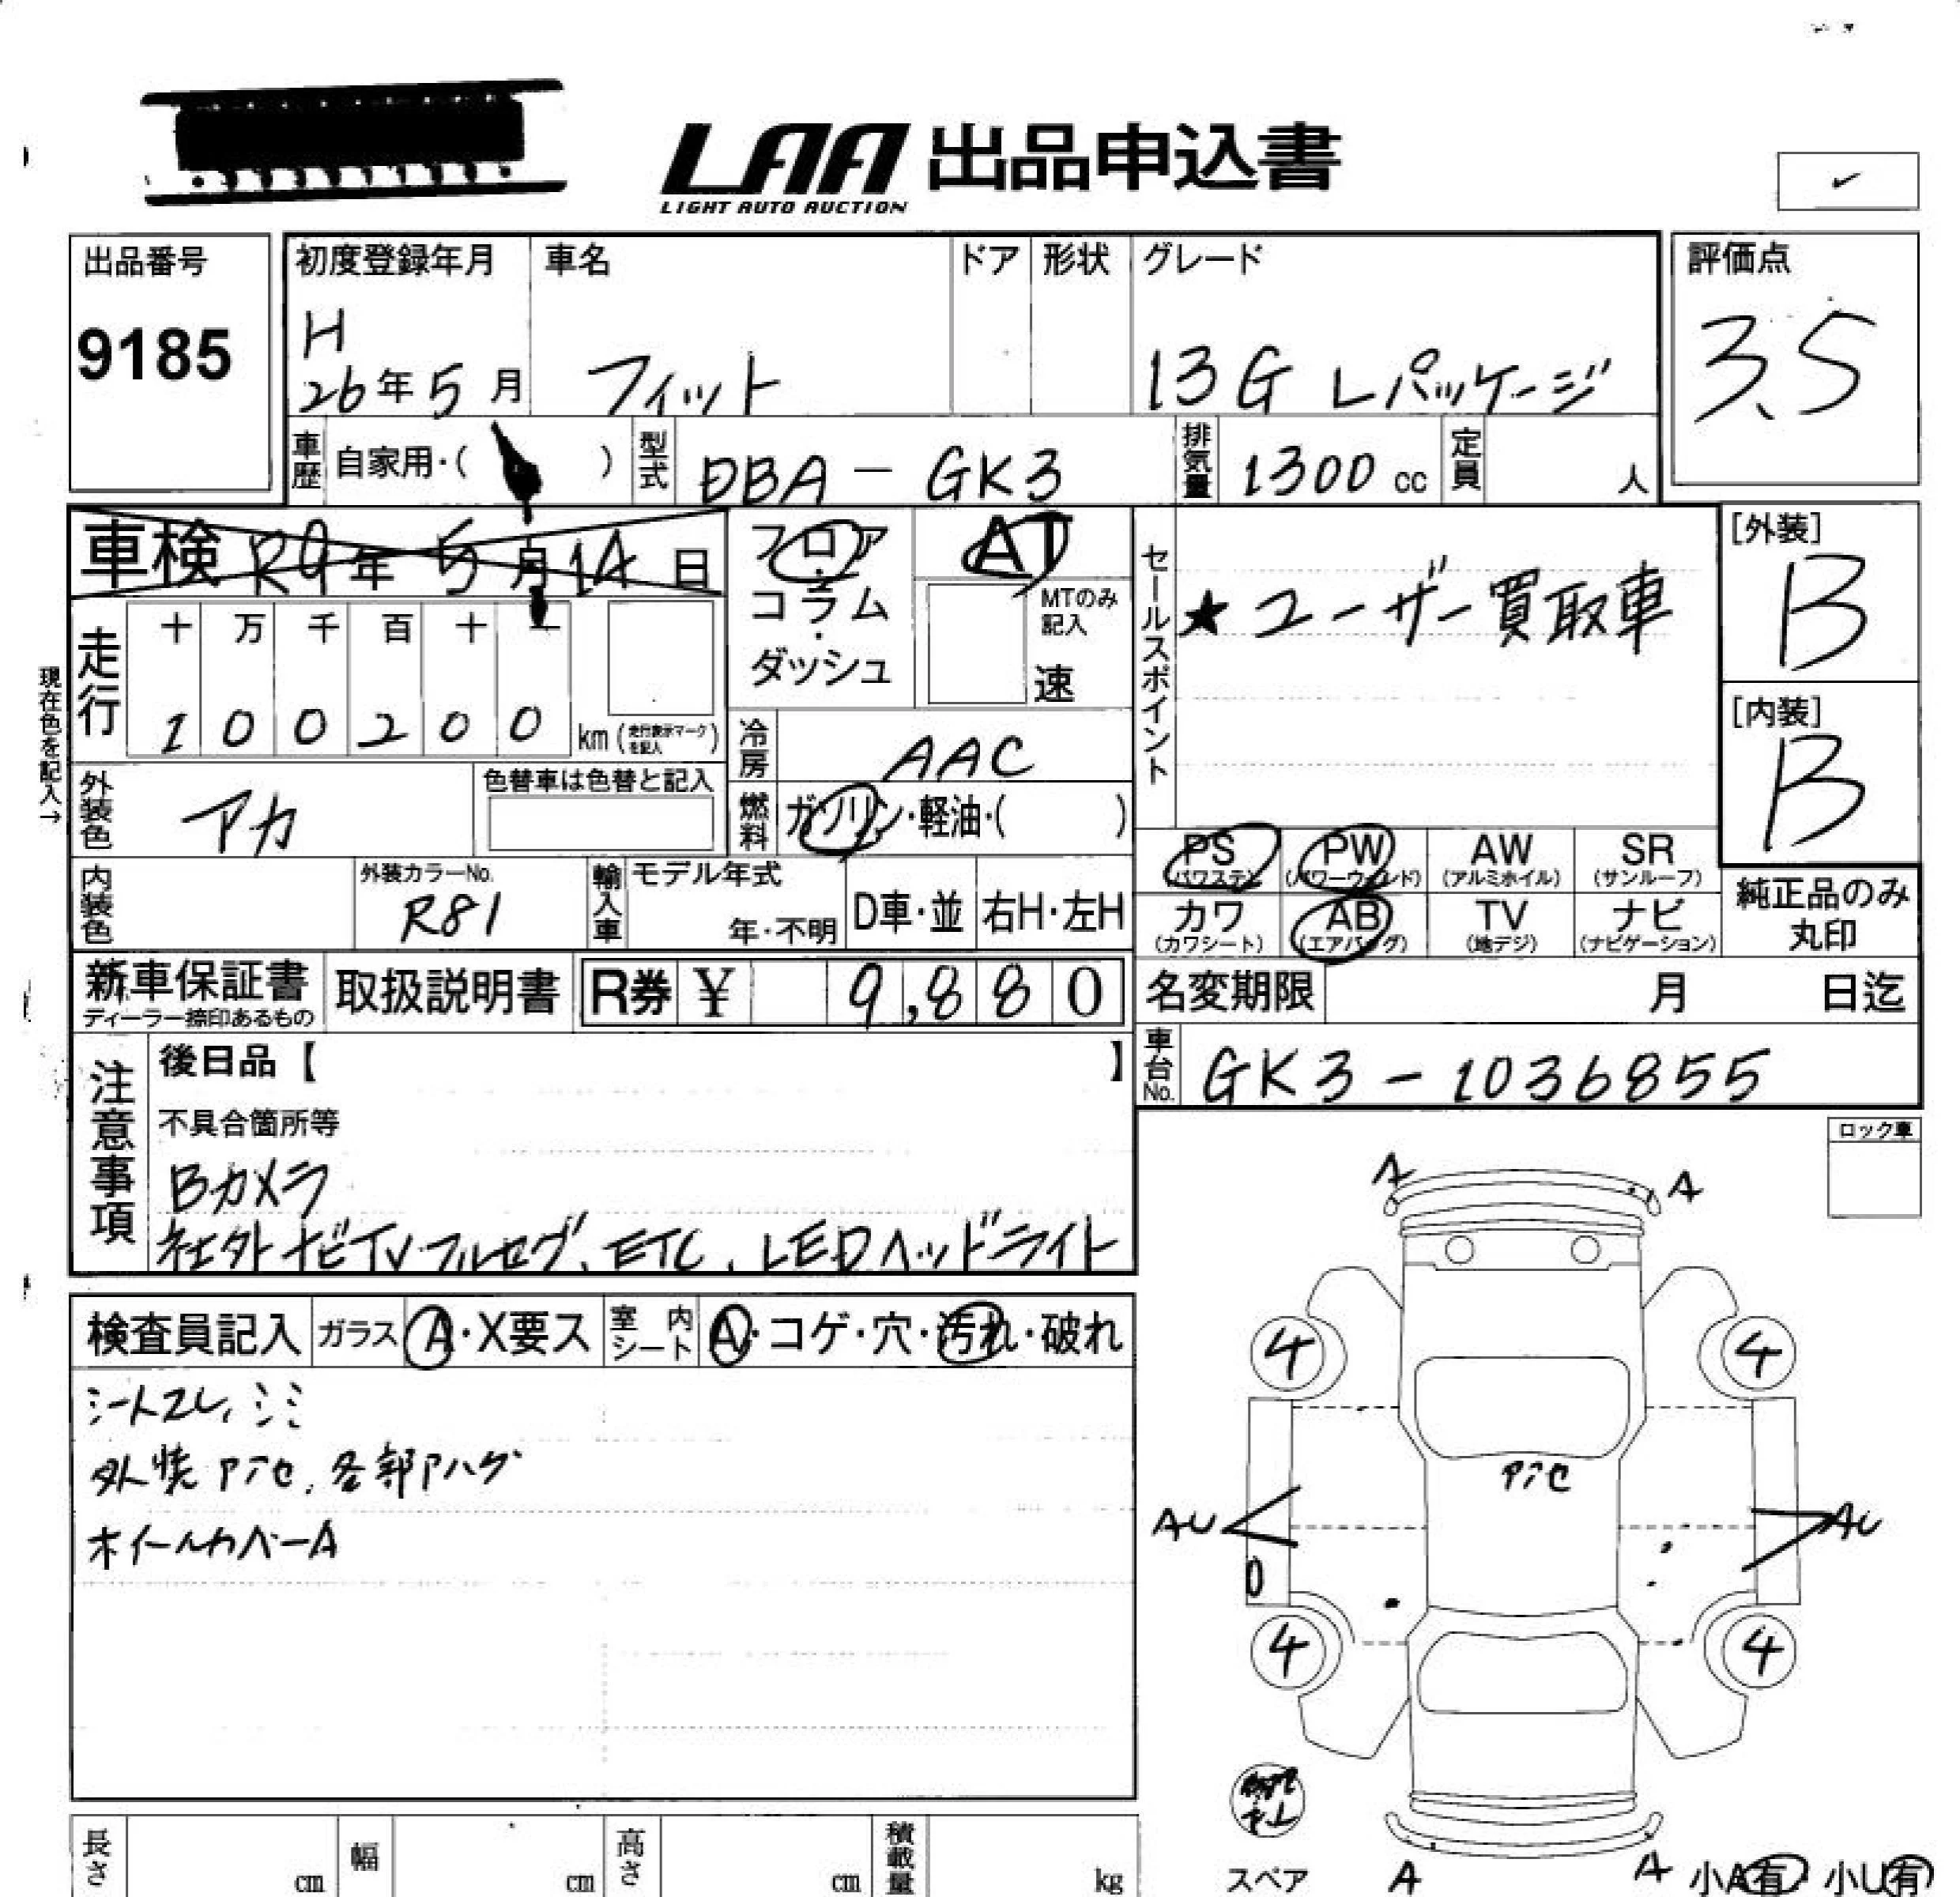 LAA 出品申込書
LIGHT AUTO AUCTION
出品番号
9185
初度登録年月
H
26年5月
車名
フィット
ドア
形状
グレード
13G Lパッケージ
評価点
3.5
車歴
自家用・( )
型式
DBA - GK3
排気量
1300 cc
定員
人
車検 R9年5月14日
フロア・コラム・ダッシュ
AT
MTのみ記入
速
セールスポイント
★ユーザー買取車
[外装]
B
[内装]
B
現在色を記入→
走行
十 万 千 百 十 一
1 0 0 2 0 0
km(走行表示マークを記入)
冷房
AAC
燃料
ガソリン・軽油・( )
外装色
アカ
色替車は色替と記入
内装色
外装カラーNo.
R81
輸入車
モデル年式
年・不明
D車・並
右H・左H
PS
(パワステ)
PW
(パワーウィンド)
AW
(アルミホイル)
SR
(サンルーフ)
カワ
(カワシート)
AB
(エアバッグ)
TV
(地デジ)
ナビ
(ナビゲーション)
純正品のみ
丸印
新車保証書
ディーラー捺印あるもの
取扱説明書
R券 ¥ 9,880
名変期限
月 日迄
車台No.
GK3-1036855
注意事項
後日品【 】
不具合箇所等
Bカメラ
社外ナビTVフルセグ、ETC、LEDヘッドライト
ロック車
検査員記入
ガラス
A・X要ス
室内シート
A・コゲ・穴・汚れ・破れ
シートスレ、シミ
外焼アテセ、各部Pハゲ
ホイールカバーA
A
A
4
4
アテセ
AU
AU
4
4
スペア
A
A
小A有・小U有
長さ
cm
幅
cm
高さ
cm
積載量
kg